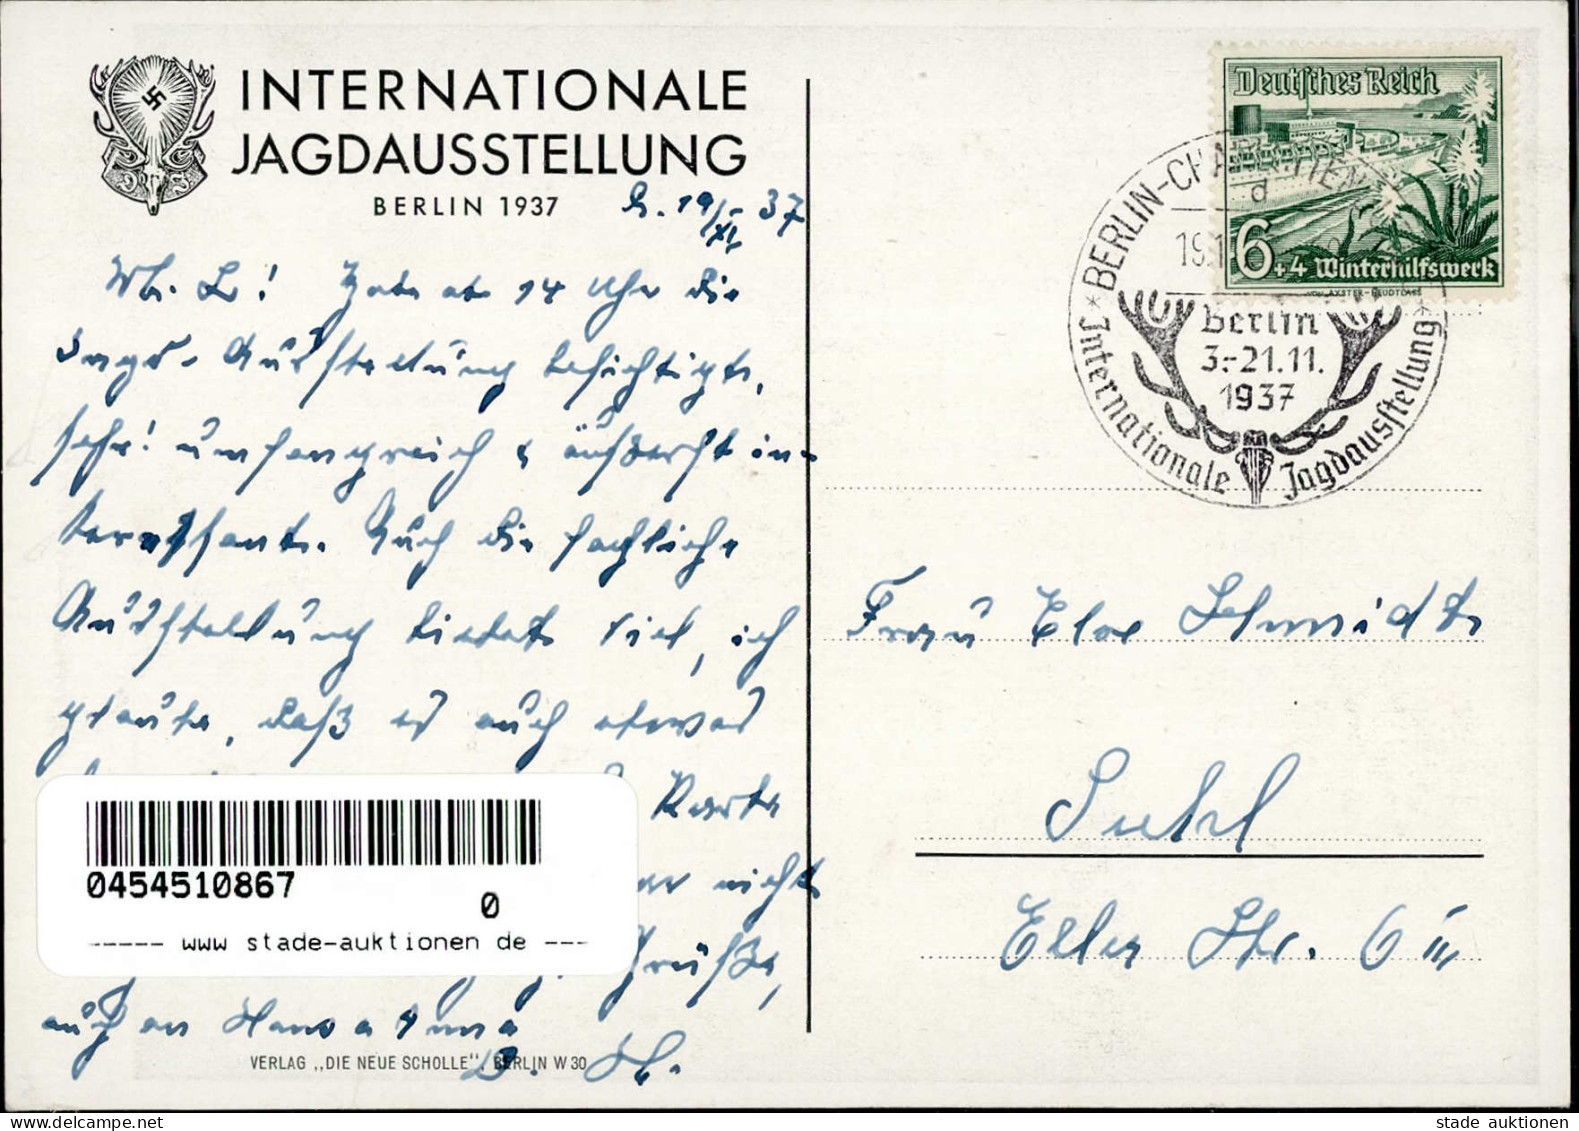 INTERNATIONALE
JAGDAUSSTELLUNG
BERLIN 1937
B. 19/XI. 37
M. L! Habe ab 14 Uhr die
Jagd-Ausstellung besichtigt,
sehr umfangreich & äußerst in-
teressant. Auch die fachliche
Ausstellung bietet viel, ich
glaube, daß es auch etwas
Karte
nicht
Grüße,
auch an Hans
VERLAG „DIE NEUE SCHOLLE", BERLIN W 30
Deutsches Reich
6+4 Winterhilfswerk
VON AXSTER-HEUDTLASS
BERLIN-CHARLOTTEN
d
19.1
Berlin
3.-21.11.
1937
Internationale Jagdausstellung
Frau Schmidt
Suhl
Str. 6 III
0454510867
0
----- www stade-auktionen de ---
stade auktionen